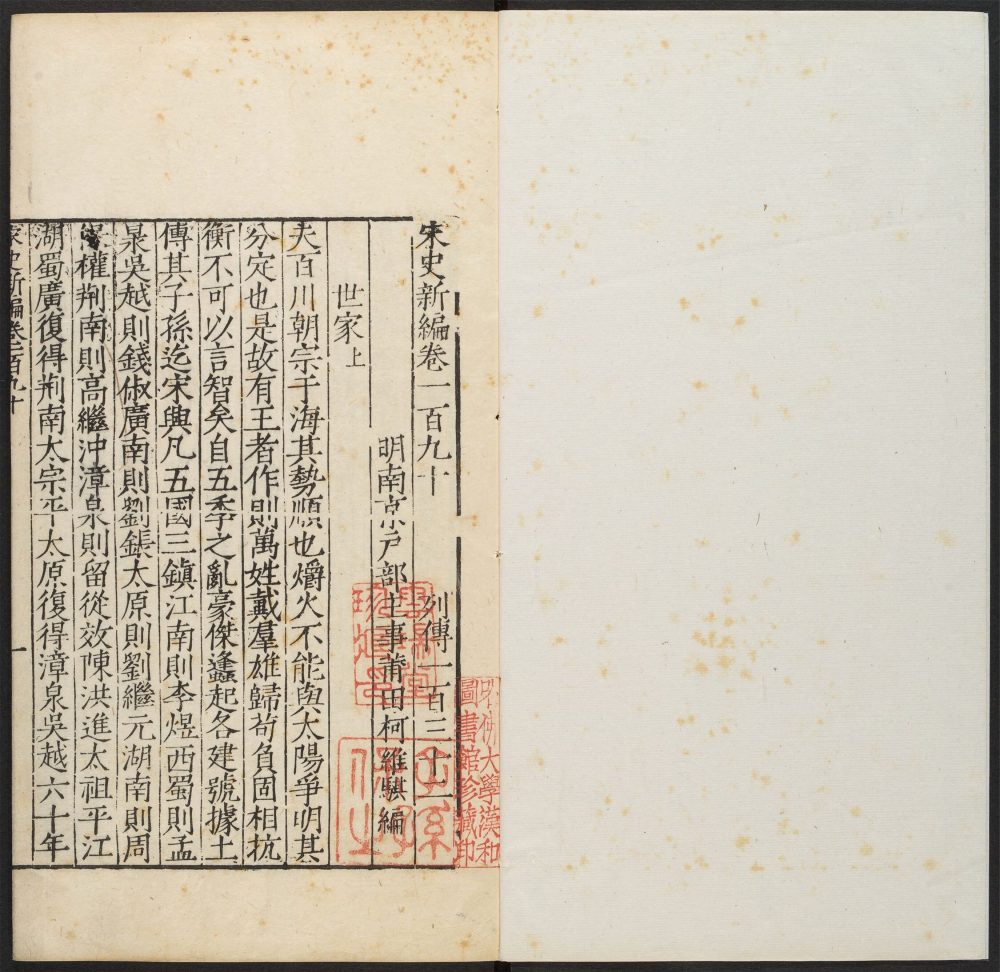 宋史新編卷一百九十 列傳一百三十二
明南京戶部主事莆田柯維騏編
世家上
夫百川朝宗于海其勢順也爝火不能與太陽爭明其
分定也是故有王者作則萬姓戴羣雄歸苟負固相抗
衡不可以言智矣自五季之亂豪傑蠭起各建號據土
傳其子孫迄宋興凡五國三鎮江南則李煜西蜀則孟
昶吳越則錢俶廣南則劉鋹太原則劉繼元湖南則周
權荆南則高繼沖漳泉則留從效陳洪進太祖平江
湖蜀廣復得荆南太宗平太原復得漳泉吳越六十年
宋史新編卷一百九十
一
哈佛大學漢和
圖書館珍藏印